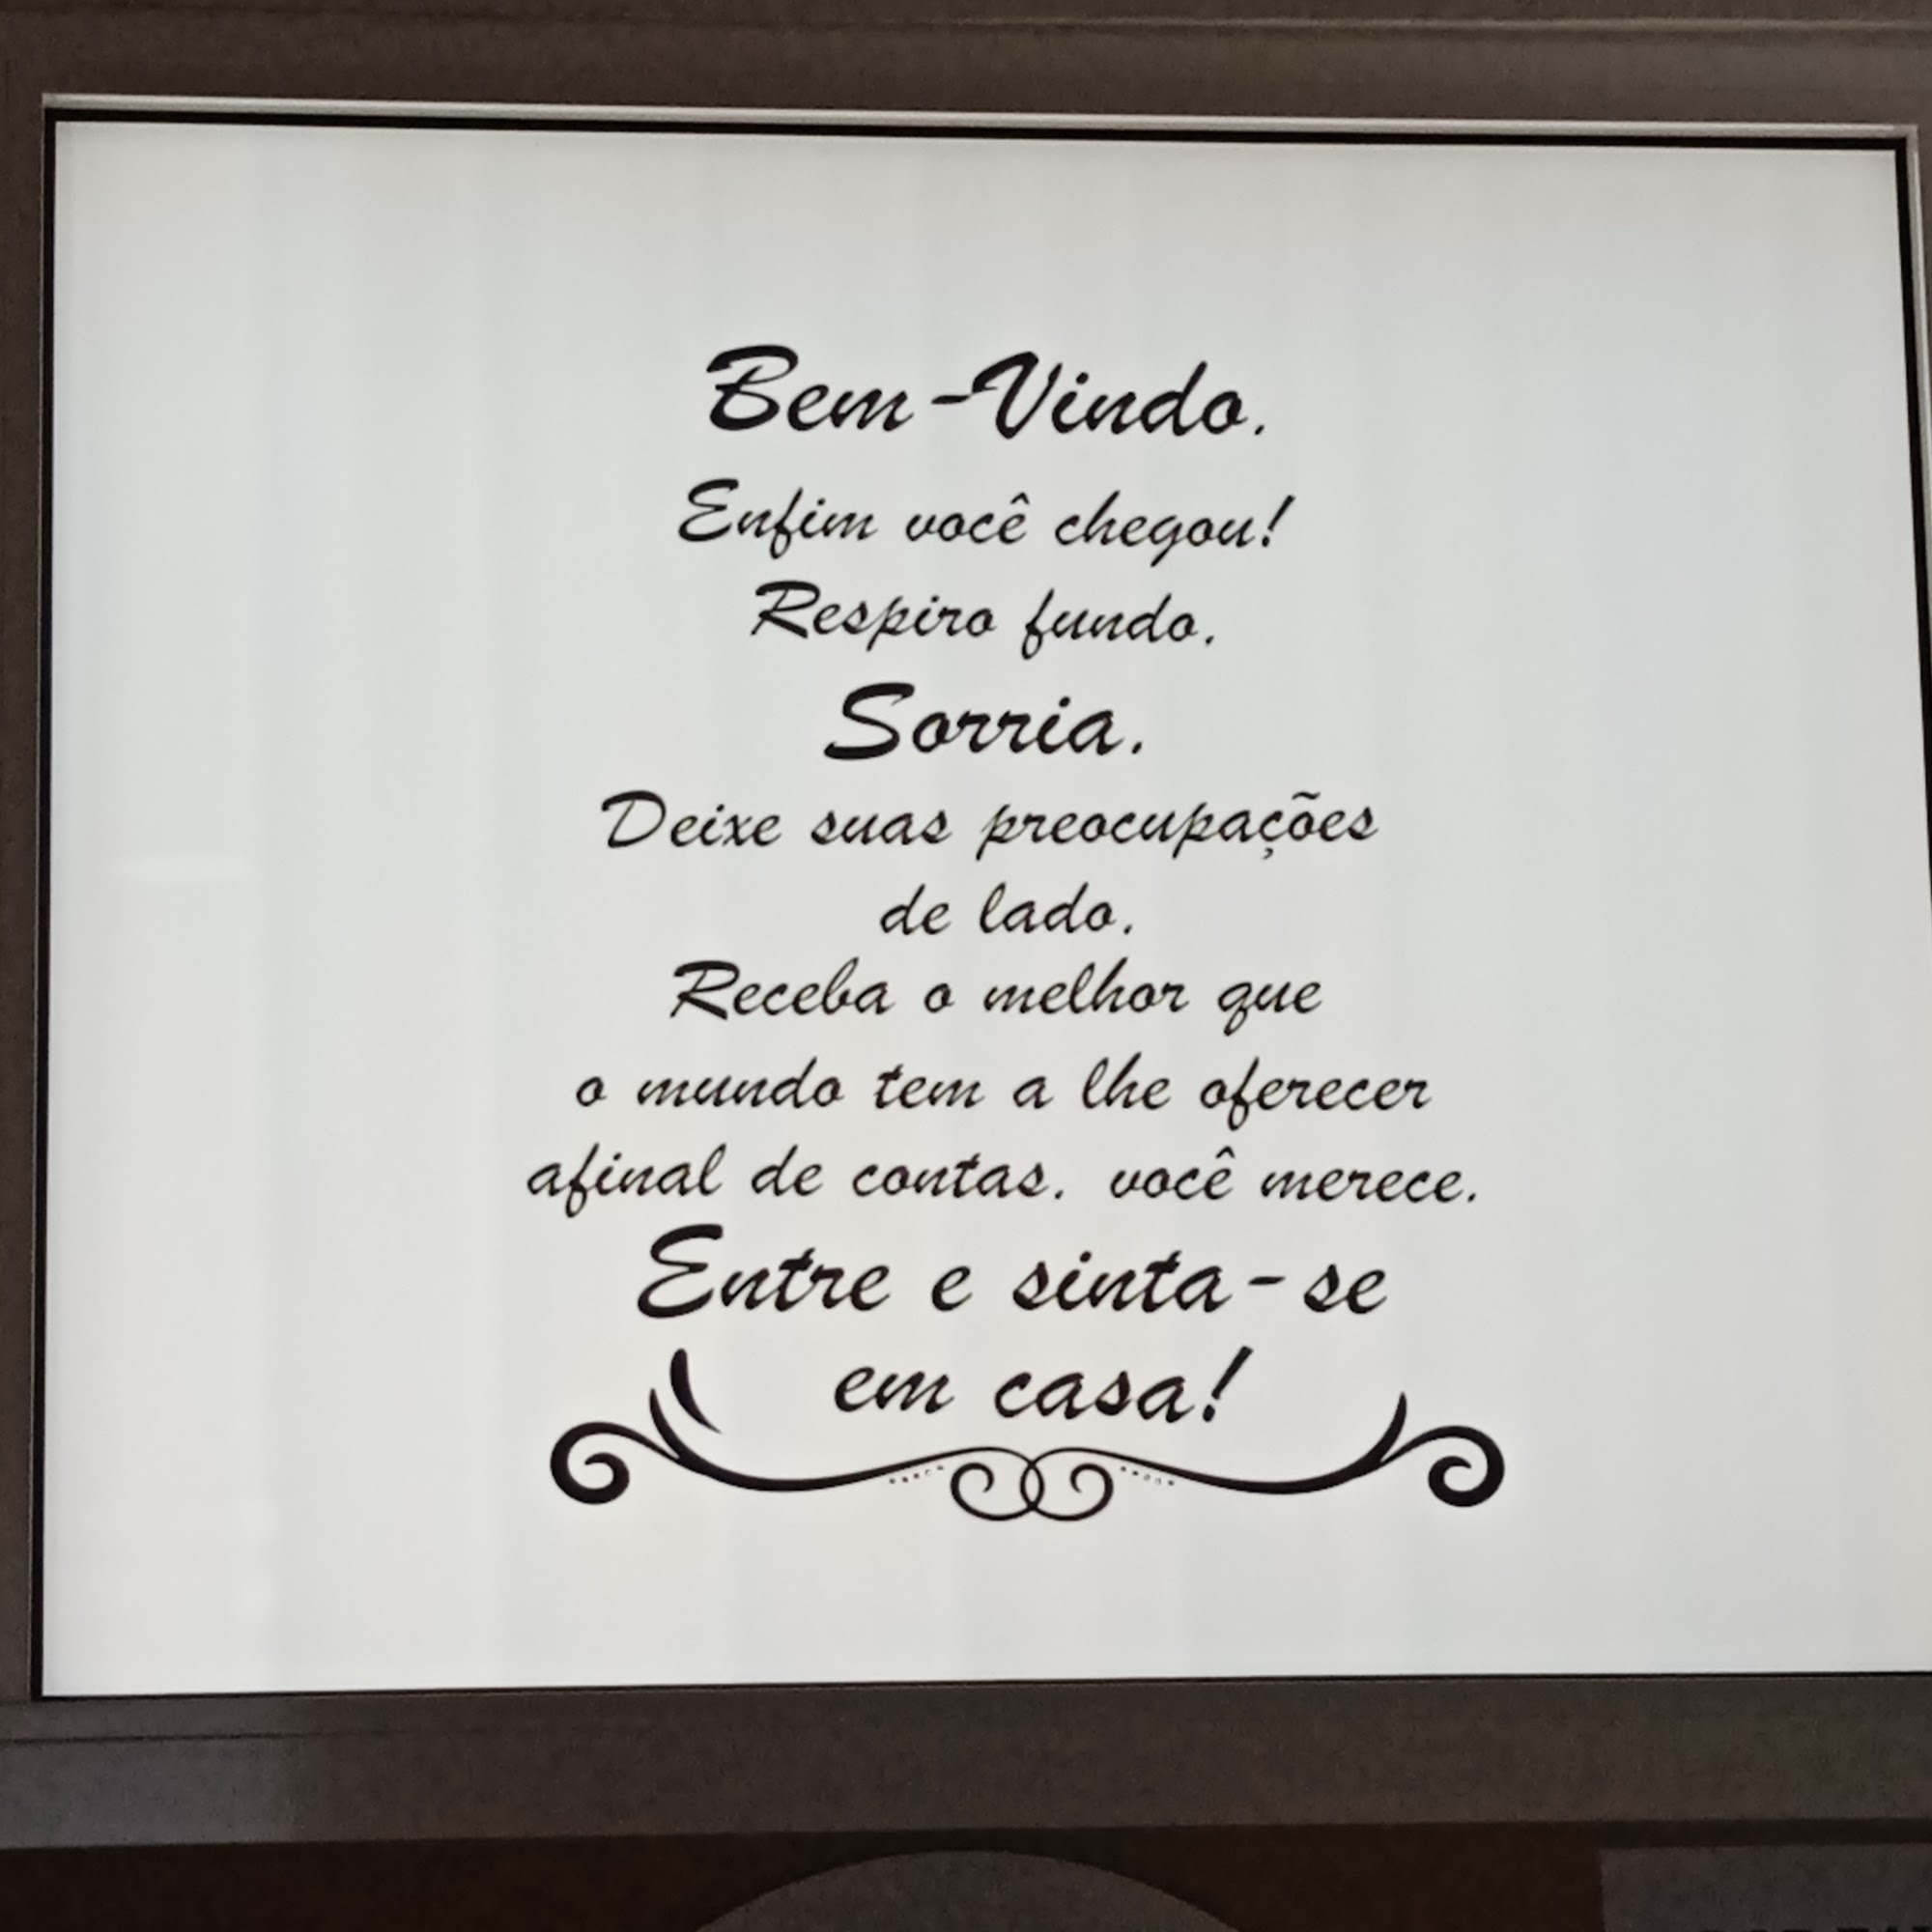 Bem-Vindo.
Enfim você chegou!
Respiro fundo.
Sorria.
Deixe suas preocupações
de lado.
Receba o melhor que
o mundo tem a lhe oferecer
afinal de contas. você merece.
Entre e sinta-se
em casa!